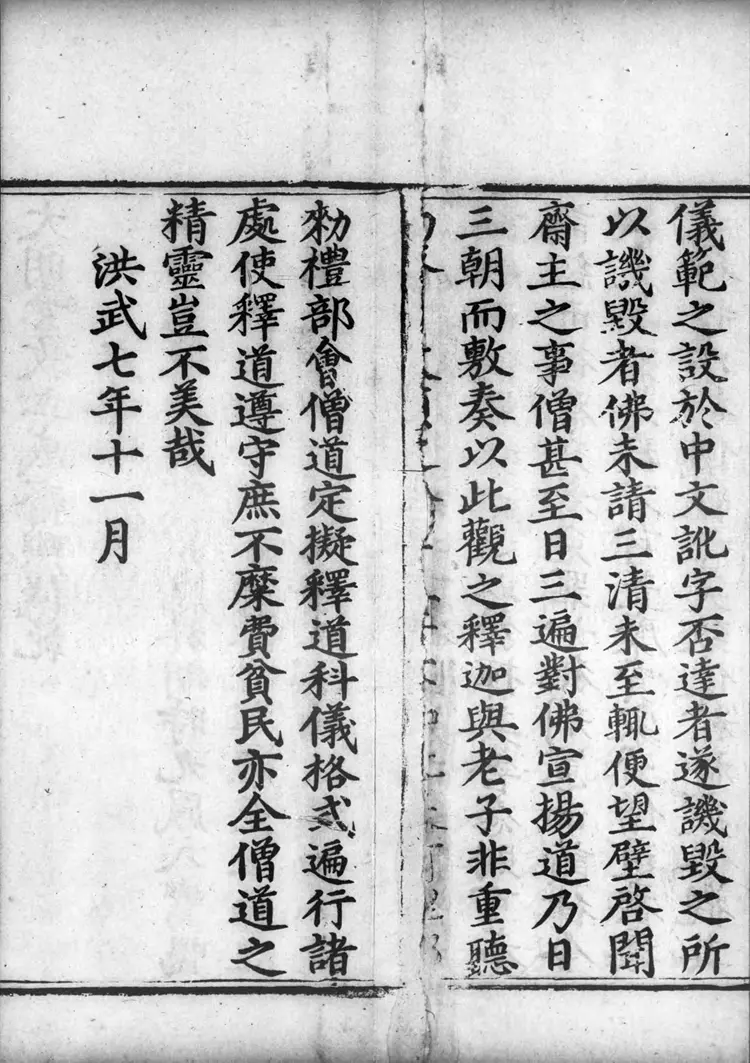 儀範之設於中文訛字否達者遂譏毀之所
以譏毀者佛未請三清未至輒便望壁啓聞
齋主之事僧甚至日三遍對佛宣揚道乃日
三朝而敷奏以此觀之釋迦與老子非重聽
勑禮部會僧道定擬釋道科儀格式遍行諸
處使釋道遵守庶不糜費貧民亦全僧道之
精靈豈不美哉
洪武七年十一月